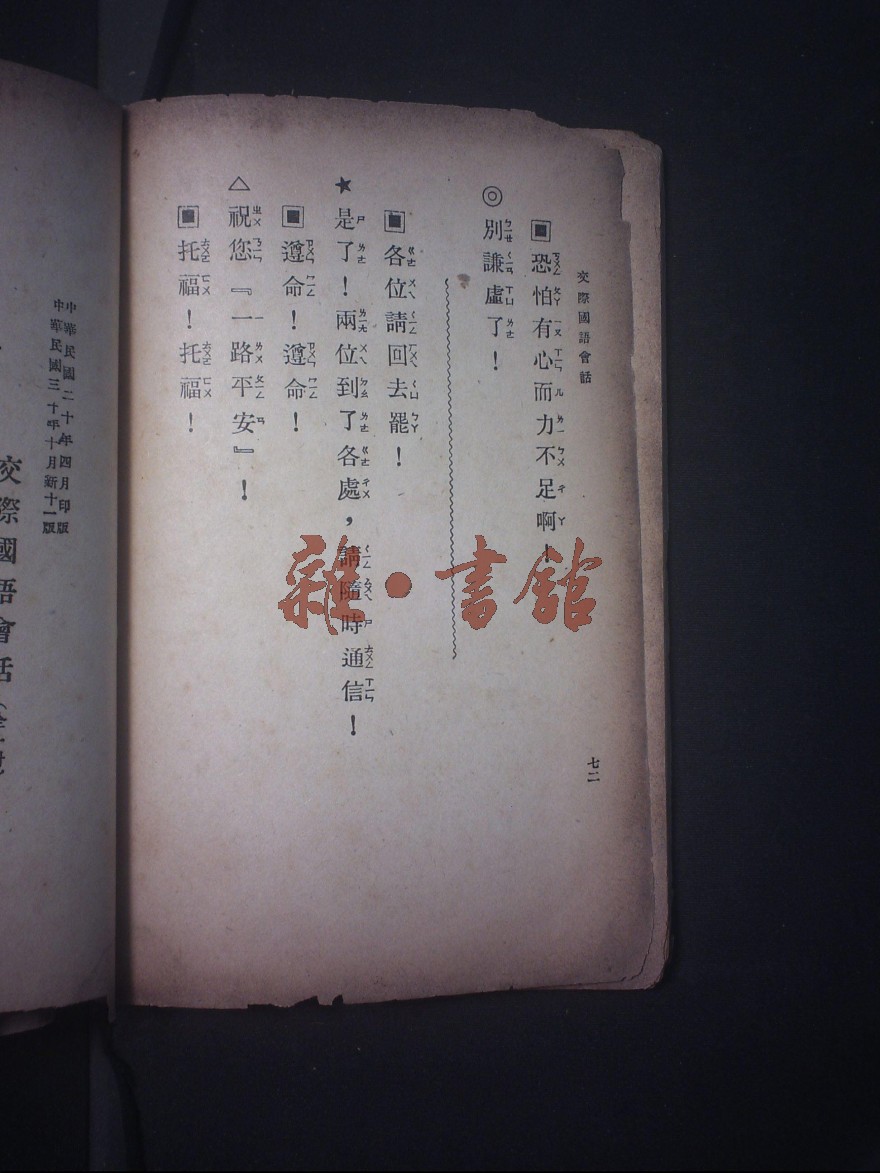 交際國語會話
七二
▣恐怕有心而力不足啊！
◎別謙虛了！
▣各位請回去罷！
★是了！兩位到了各處，請隨時通信！
▣遵命！遵命！
△祝您『一路平安』！
▣托福！托福！
雜·書館
中華民國二十年四月印版
中華民國三十年十月新十一版
交際國語會話